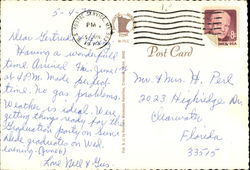 5-4-
U.S. POSTAL SERVICE
PM
Dear Gertrude
Having a wonderful
time Arrived Fri. June 1
at 4 P.M. Made perfect
time. No gas problems
Weather is ideal. Were
getting things ready for the
Graduation party on Sun.
Dede graduates on Wed.
evening.
Love Nell & Gus.
Post Card
8c
Mr. & Mrs. H. Perl
2023 Highridge Dr.
Clearwater
Florida
33575